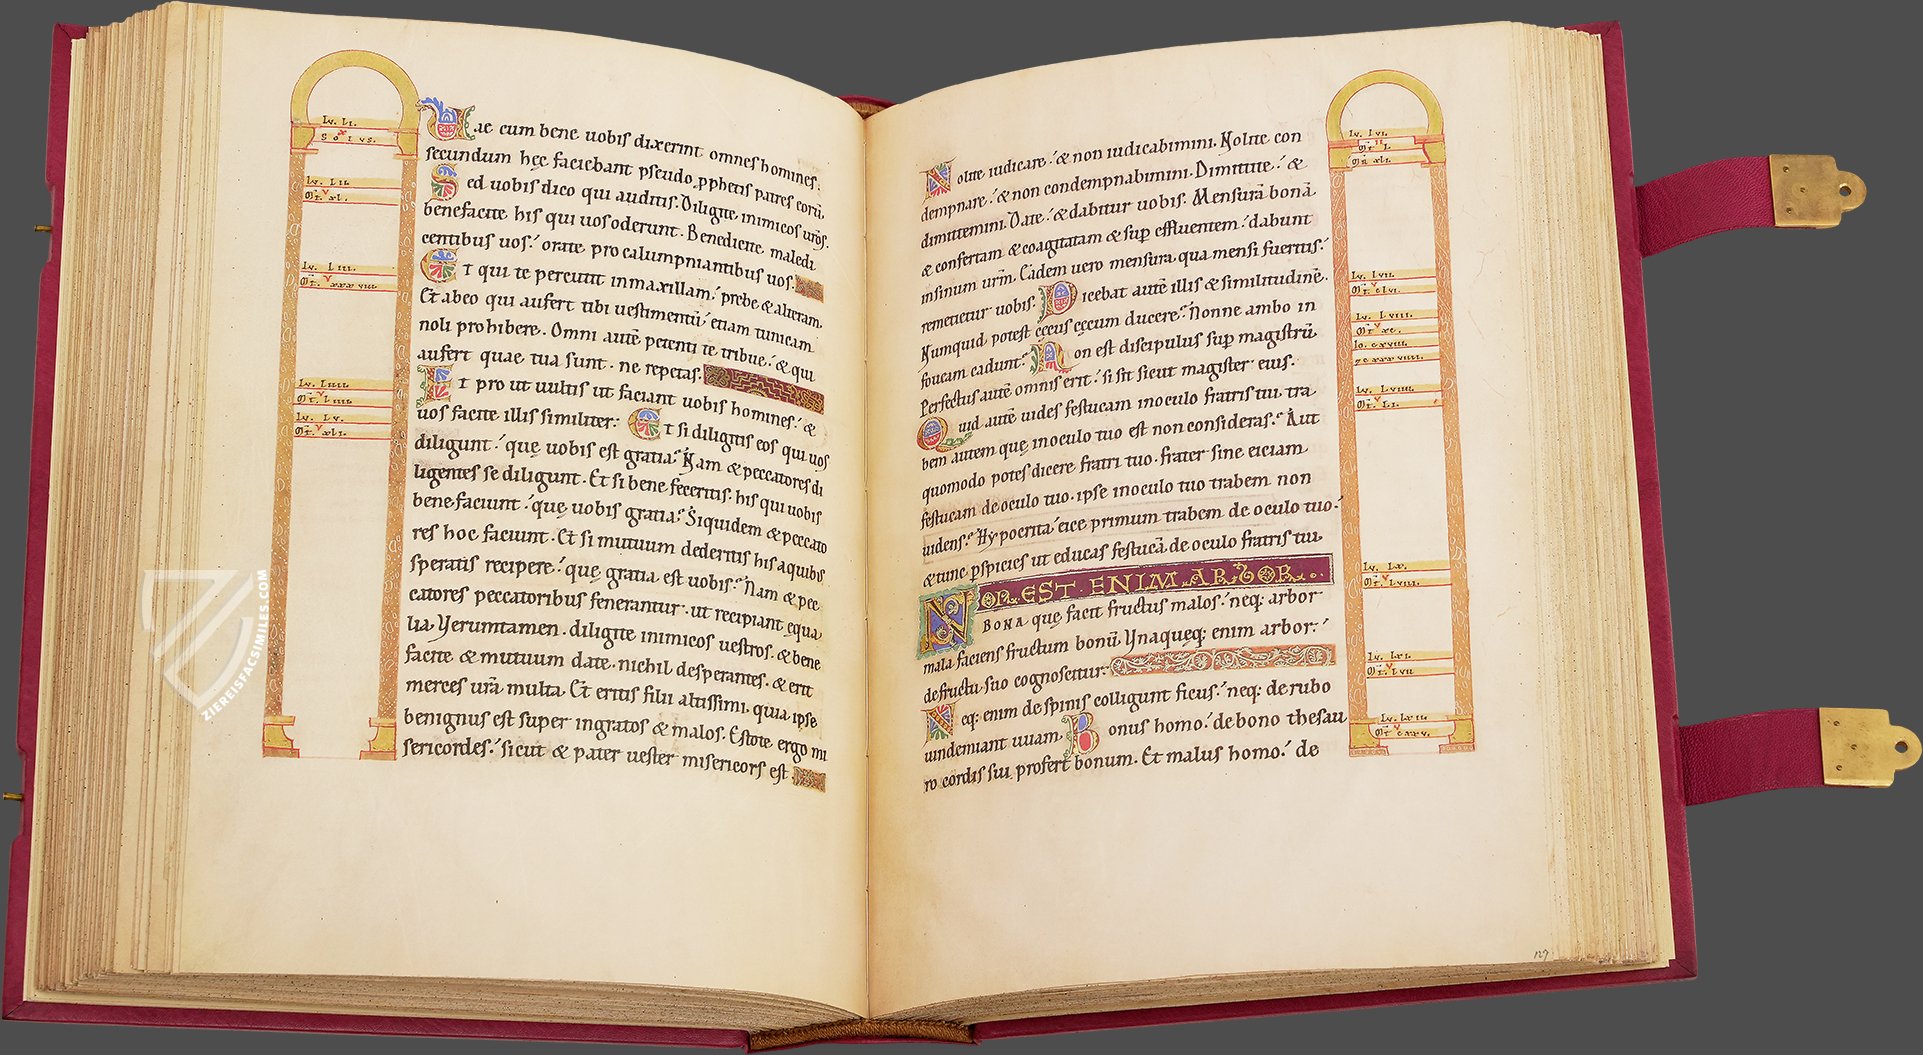 Lv. LI.
SOLVS.
Lv. LII.
Mt. xl.
Lv. LIII.
Mt. xxxviii
Lv. LIIII.
Mt. LIIII
Lv. Lv.
Mt. xli.
Vae cum bene uobis dixerint omnes homines.
secundum hęc faciebant pseudo pphetis patres eorū.
Sed uobis dico qui auditis. Diligite inimicos urōs.
benefacite his qui uos oderunt. Benedicite maledi
centibus uos. orate pro calumpniantibus uos.
Et qui te percutit in maxillam. prebe & alteram.
Et ab eo qui aufert tibi uestimentū etiam tunicam
noli prohibere. Omni autē petenti te tribue. & qui
aufert quae tua sunt. ne repetas.
Et pro ut uultis ut faciant uobis homines. &
uos facite illis similiter. Et si diligitis eos qui uos
diligunt. quę uobis est gratia. Nam & peccatores di
ligentes se diligunt. Et si bene feceritis. his qui uobis
bene faciunt. quę uobis gratia. Siquidem & peccato
res hoc faciunt. Et si mutuum dederitis his a quibus
speratis recipere. quę gratia est uobis. Nam & pec
catores peccatoribus fenerantur. ut recipiant equa
lia. Verumtamen. diligite inimicos uestros. & bene
facite & mutuum date. nichil desperantes. & erit
merces urā multa. Et eritis filii altissimi. quia ipse
benignus est super ingratos & malos. Estote ergo mi
sericordes. sicut & pater uester misericors est
ZIEREISFACSIMILES.COM
Nolite iudicare. & non iudicabimini. Nolite con
dempnare. & non condempnabimini. Dimittite. &
dimittemini. Date. & dabitur uobis. Mensurā bonā
& confertam & coagitatam & sup effluentem. dabunt
in sinum urm̄. Eadem uero mensura qua mensi fueritis.
remetietur uobis. Dicebat autē illis & similitudinē.
Numquid potest cęcus cęcum ducere. Nonne ambo in
foueam cadunt. Non est discipulus sup magistrū.
Perfectus autē omnis erit. si sit sicut magister eius.
Quid autē uides festucam in oculo fratris tui. tra
bem autem quę in oculo tuo est non consideras. Aut
quomodo potes dicere fratri tuo. frater sine eiciam
festucam de oculo tuo. ipse in oculo tuo trabem non
uidens. Hypocrita eice primum trabem de oculo tuo.
& tunc pspicies ut educas festucā de oculo fratris tui
NON EST ENIM ARBOR..
BONA quę facit fructus malos. neq; arbor
mala faciens fructum bonū. Vnaquęq; enim arbor.
de fructu suo cognoscitur.
Neq; enim de spinis colligunt ficus. neq; de rubo
uindemiant uuam. Bonus homo. de bono thesau
ro cordis sui profert bonum. Et malus homo. de
Lv. LVI.
Mt. L
Mr. xli.
Lv. LVII.
Mt. clvi.
Lv. LVIII.
Mt. xc.
Io. cxviii.
7 cxxxviiii.
Lv. LVIIII.
Mt. LI.
Lv. Lx.
Mt. LVIII.
Lv. LxI.
Mt. LxII
Lv. LxII.
Mt. cxxv.
127